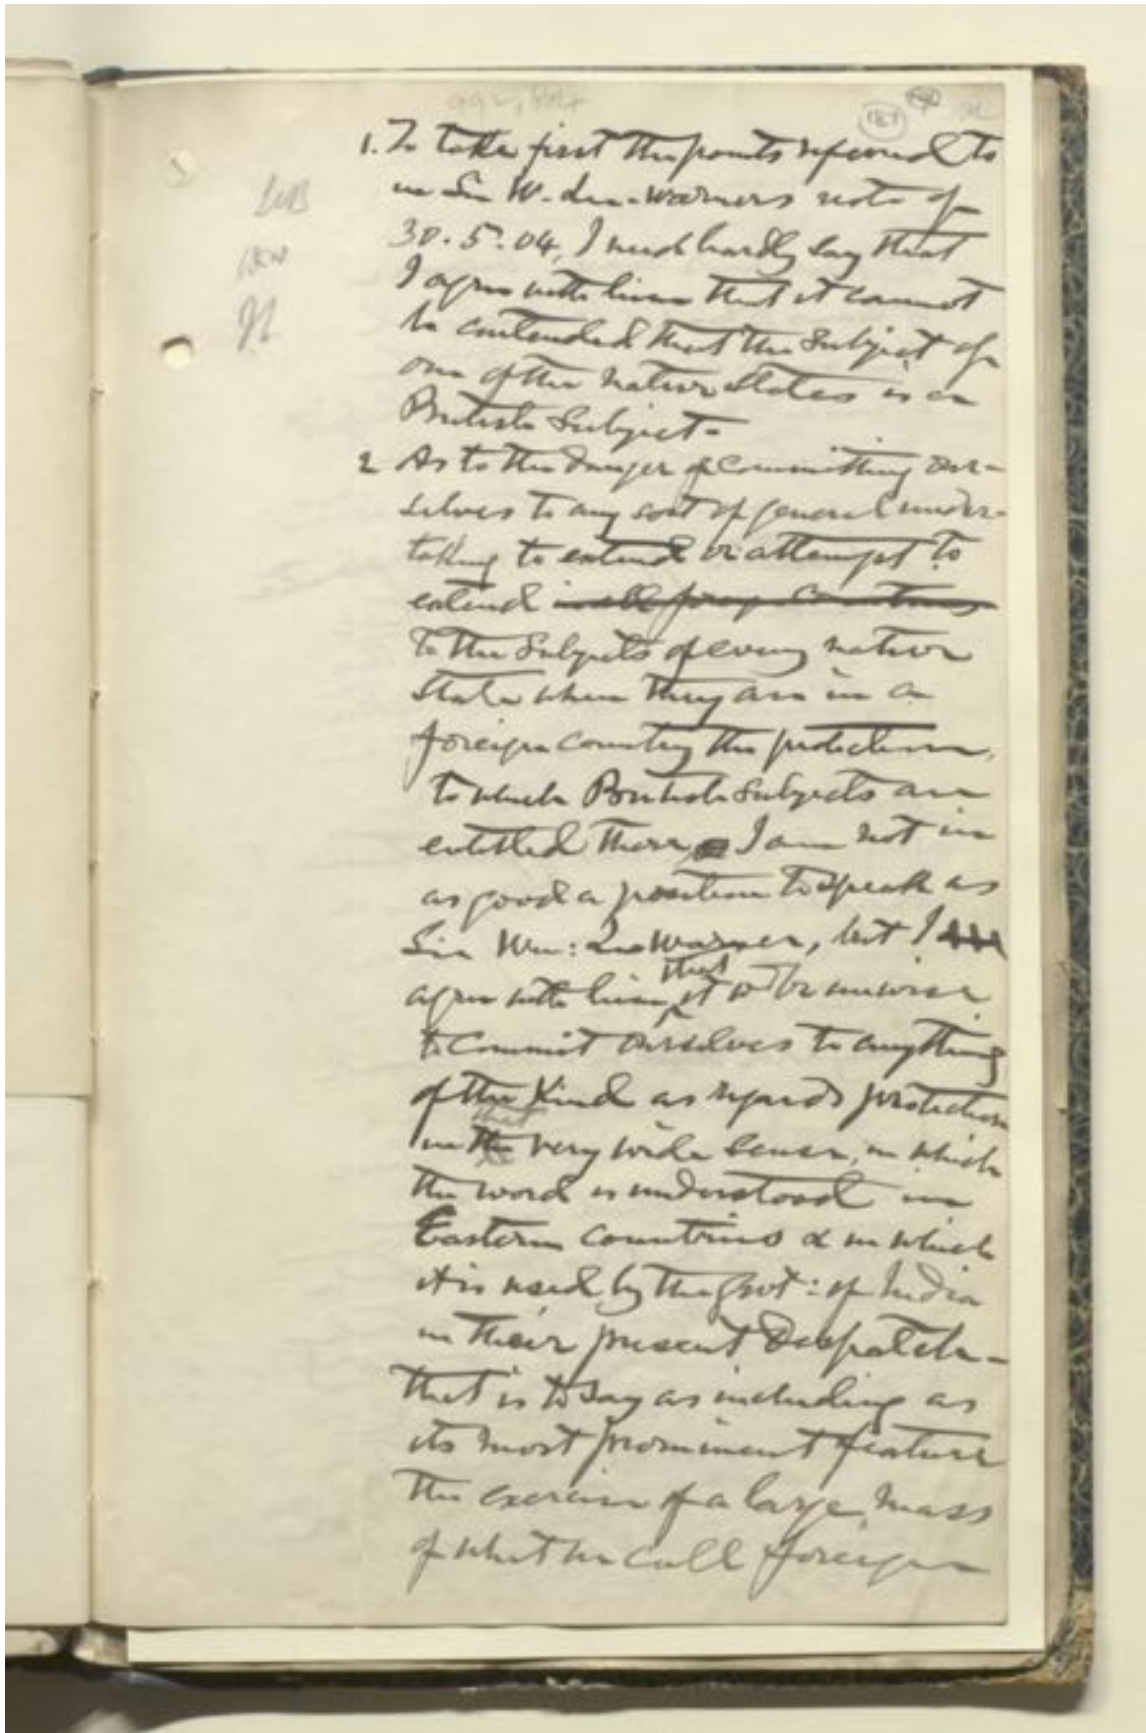 187
1. To take first the points referred to
in Sir W. Lee-Warners note of
30.5.04, I need hardly say that
I agree with him that it cannot
be contended that the Subject of
one of the native States is a
British Subject.
2 As to the danger of committing our-
selves to any sort of general under-
taking to extend or attempt to
extend in all foreign Countries
to the Subjects of every native
State when they are in a
foreign country the protection,
to which British Subjects are
entitled there, I am not in
as good a position to speak as
Sir Wm: Lee Warner, but I
agree with him that it wd be unwise
to commit ourselves to anything
of the Kind as regards protection
in that very wide sense, in which
the word is understood in
Eastern Countries & in which
it is used by the Govt: of India
in their present Despatch -
that is to say as including as
its most prominent feature
the exercise of a large mass
of what we call foreign